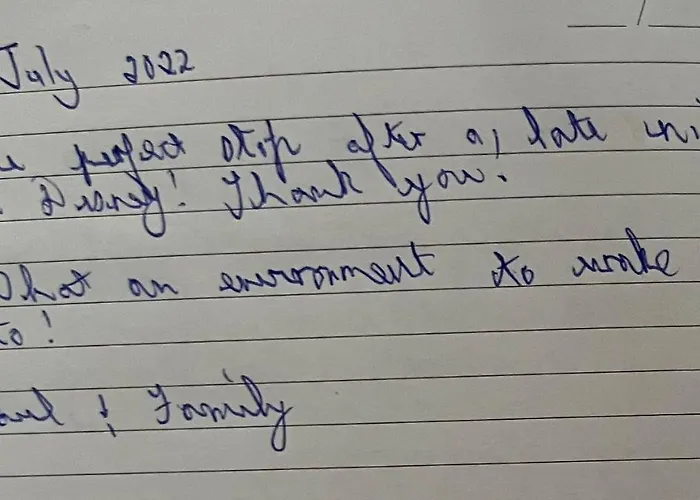 July 2022
perfect stop after a late
Disney! Thank you.
What an environment to wake
to!
& Family